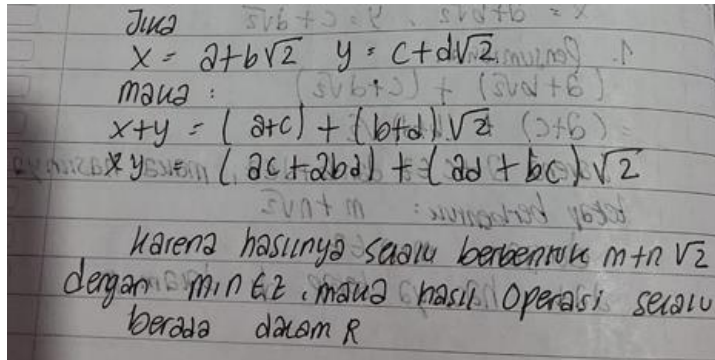 Jika
x = a+b√2 y = c+d√2
maka :
x+y = ( a+c) + (b+d) √2
xy = ( ac+2bd) + ( ad + bc) √2
Karena hasilnya selalu berbentuk m+n √2
dengan m,n ∈ Z , maka hasil Operasi selalu
berada dalam R